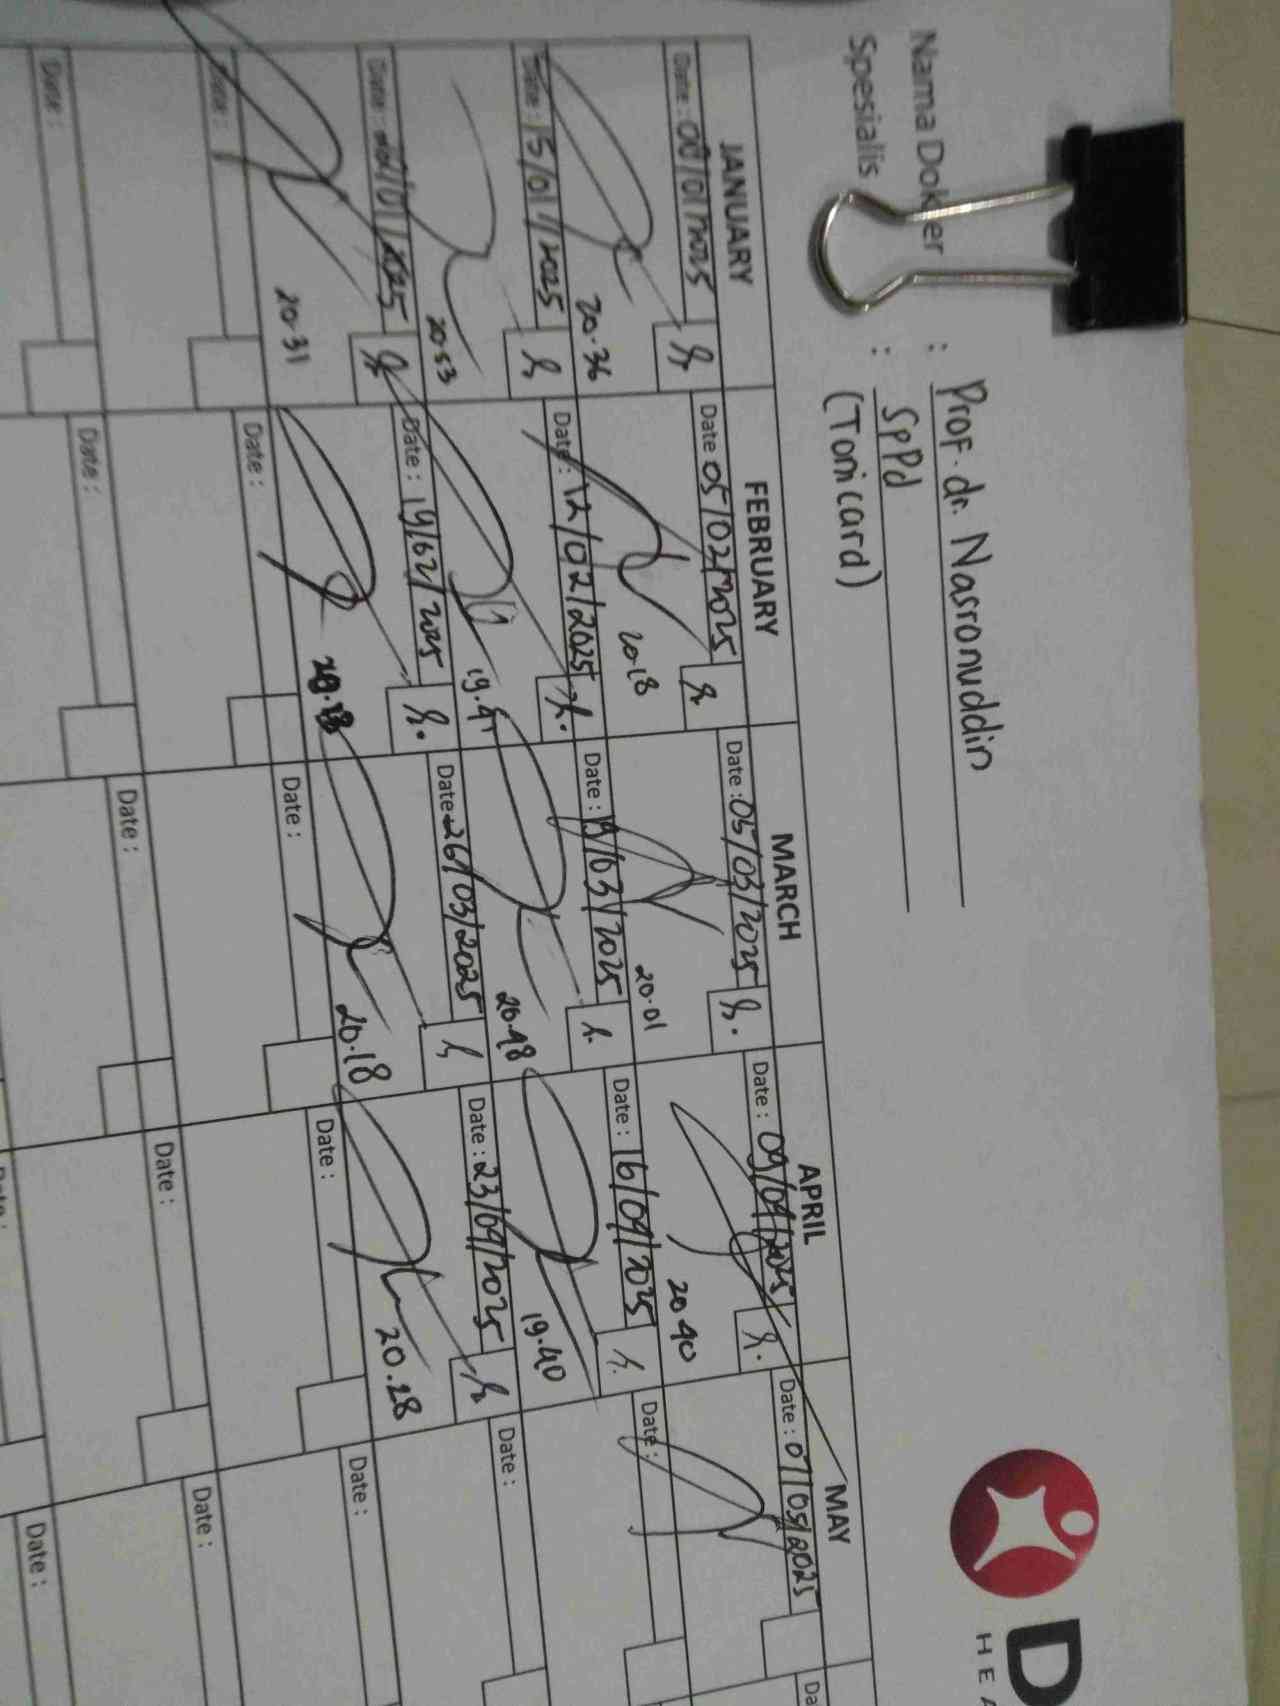 Nama Dokter : Prof. dr. Nasronuddin
Spesialis : SpPd
(Toni card)
D
HEA
JANUARY FEBRUARY MARCH APRIL MAY
Date : 08/01/2025 Date 05/02/2025 Date : 05/03/2025 Date : 09/04/2025 Date : 07/05/2025 Da
20.36 20.18 20.01 20.40
Date : 15/01/2025 Date : 12/02/2025 Date : 19/03/2025 Date : 16/04/2025 Date :
20.53 19.41 20.48 19.40
Date : /01/2025 Date : 19/02/2025 Date 26/03/2025 Date : 23/04/2025 Date :
20.31 20.18 20.28
Date : Date : Date : Date : Date :
Date : Date : Date : Date : Date :
Date :